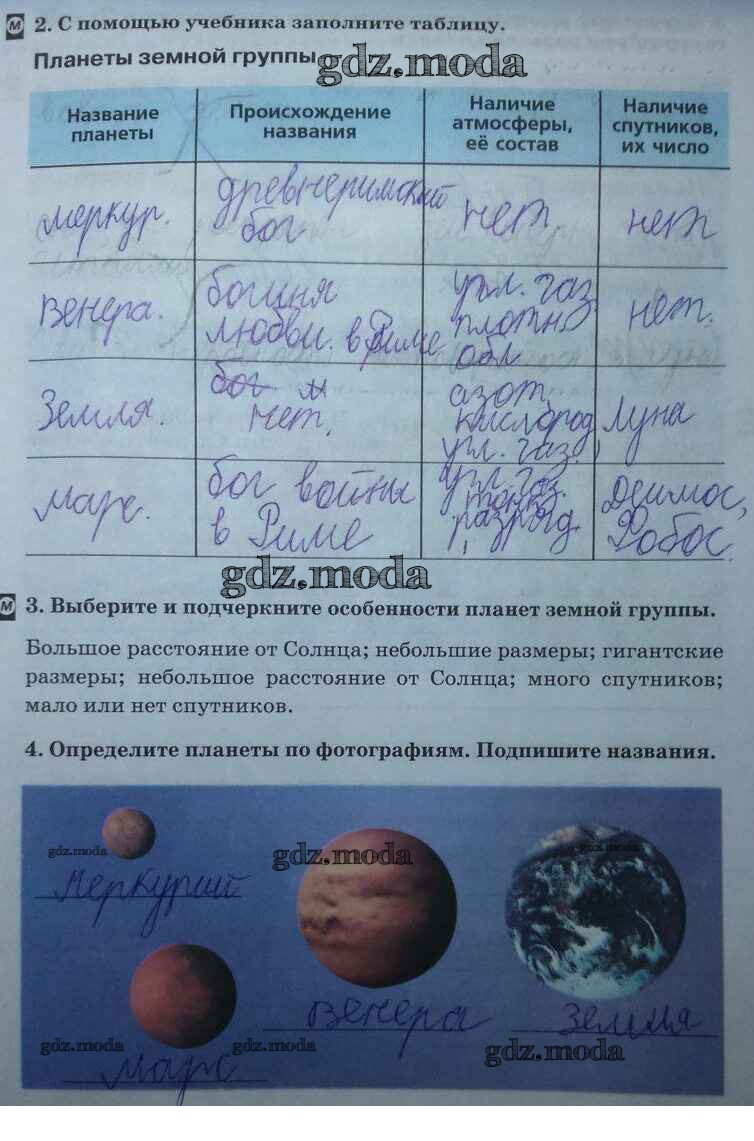 М 2. С помощью учебника заполните таблицу.
Планеты земной группы
gdz.moda
Название планеты
Происхождение названия
Наличие атмосферы, её состав
Наличие спутников, их число
меркур.
древнеримский
бог
нет
нет
Венера.
богиня
любви. в Риме
угл. газ
плотн
обл
нет.
Земля.
бог. м
нет.
азот,
кислород,
угл. газ.
Луна
марс.
бог войны
в Риме
угл. газ.
Деимос,
Фобос
gdz.moda
М 3. Выберите и подчеркните особенности планет земной группы.
Большое расстояние от Солнца; небольшие размеры; гигантские
размеры; небольшое расстояние от Солнца; много спутников;
мало или нет спутников.
4. Определите планеты по фотографиям. Подпишите названия.
gdz.moda
gdz.moda
gdz.moda
Меркурий
Венера
Земля
gdz.moda
gdz.moda
gdz.moda
марс